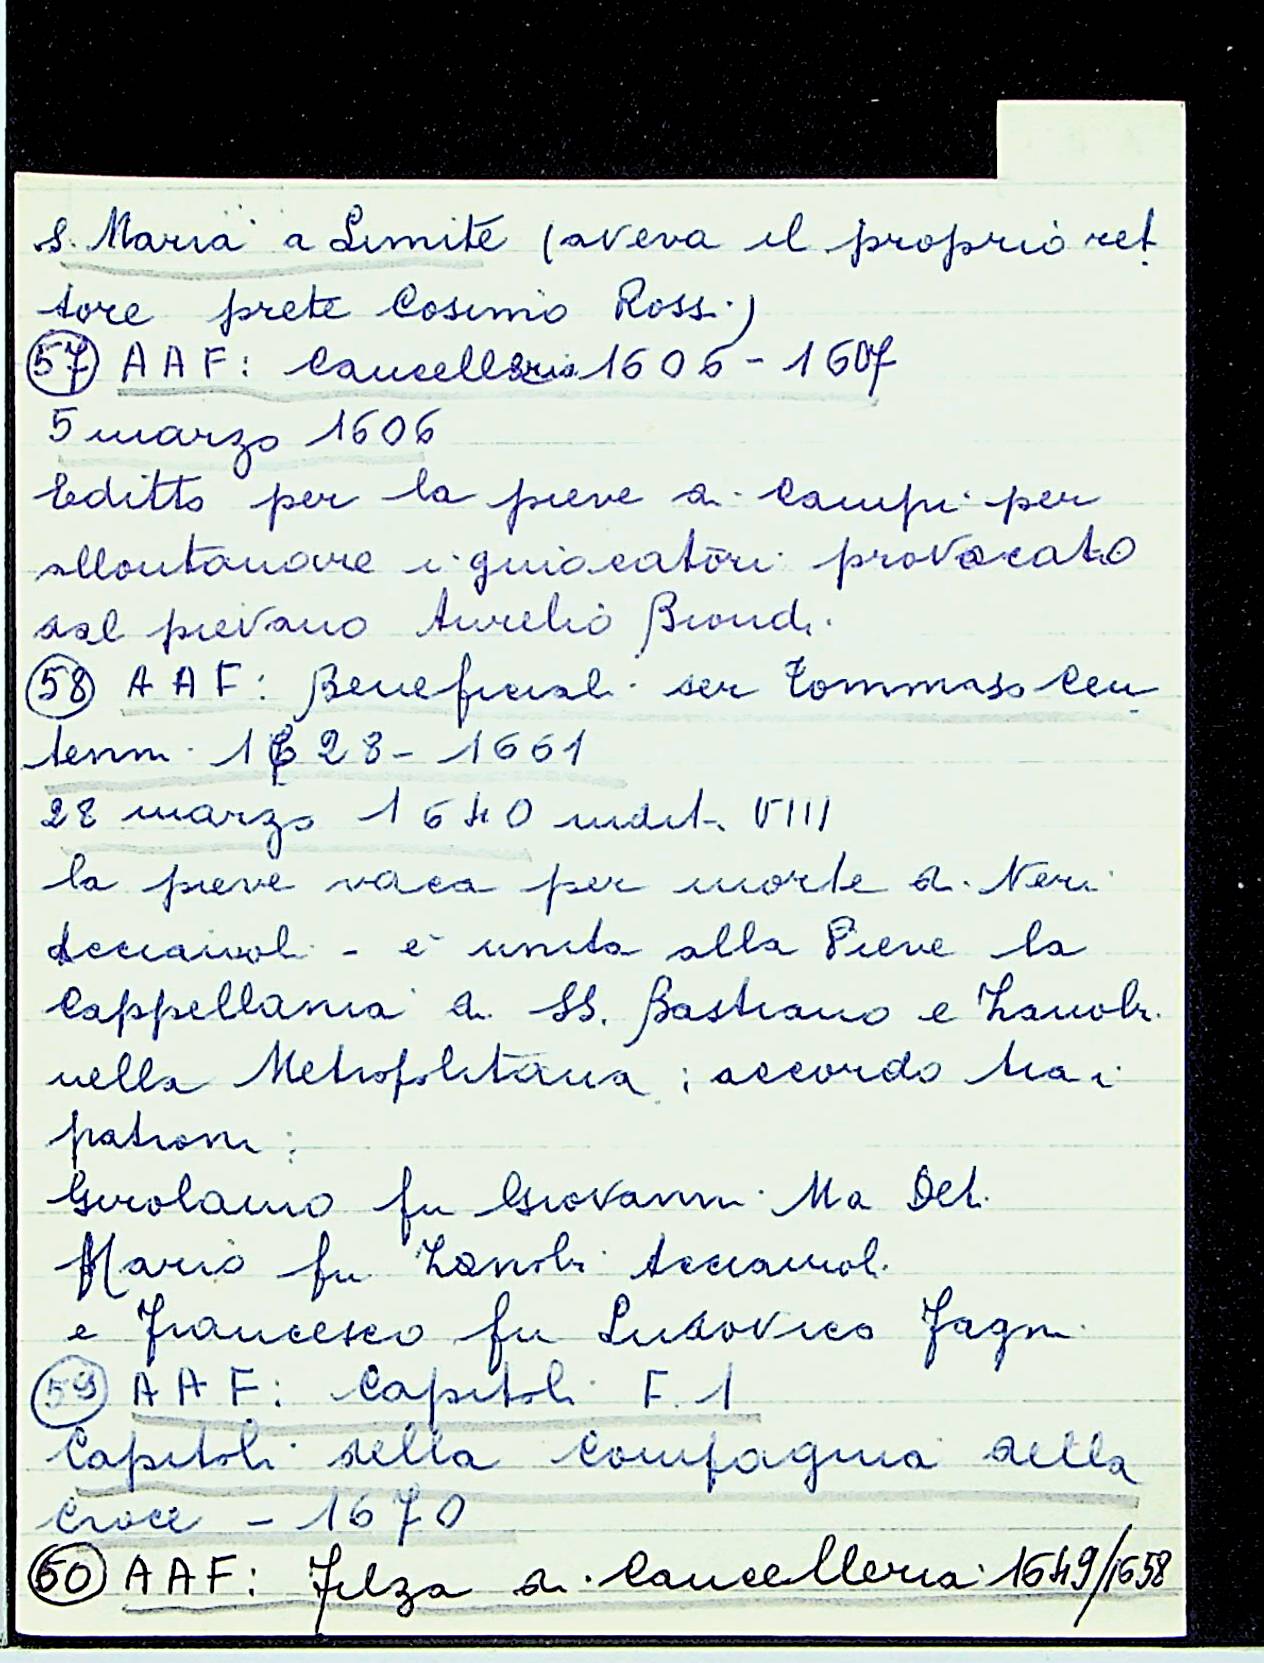 S. Maria a Limite (aveva il proprio ret
tore prete Cosimo Rossi)
57 AAF: Cancelleria 1606-1607
5 marzo 1606
Editto per la pieve di Campi per
allontanare i giuocatori provocato
dal pievano Aurelio Biondi.
58 AAF: Beneficiali ser Tommaso Cen
tenni 1628-1661
28 marzo 1640 indit. VIII
la pieve vaca per morte di Neri
Acciaiuoli - è unita alla Pieve la
Cappellania di SS. Bastiano e Zanobi
nella Metropolitana; accordo tra i
patroni:
Girolamo fu Giovanni Ma Deti
Mario fu Zanobi Acciaiuoli
e Francesco fu Ludovico Fagni
59 AAF: Capitoli F. 1
Capitoli della Compagnia della
Croce - 1670
60 AAF: Filza di Cancelleria 1649/1658